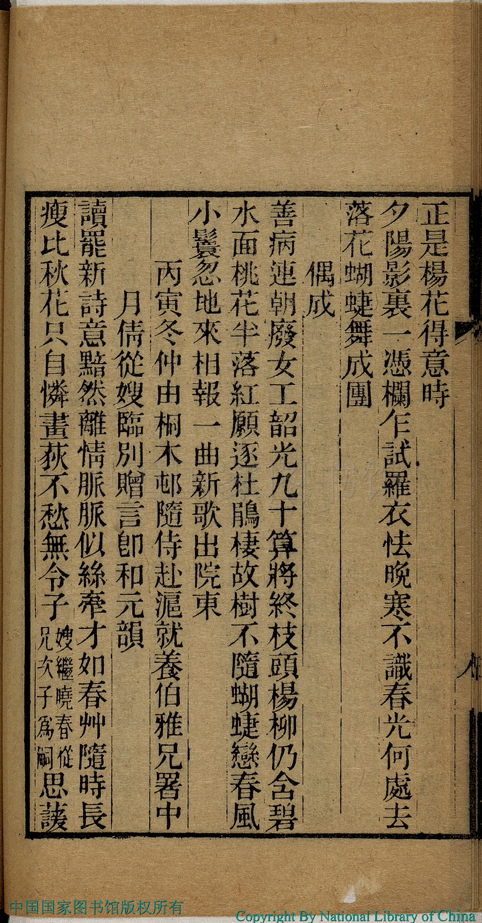 正是楊花得意時
夕陽影裏一憑欄乍試羅衣怯晚寒不識春光何處去
落花蝴蜨舞成團
偶成
善病連朝廢女工韶光九十算將終枝頭楊柳仍含碧
水面桃花半落紅願逐杜鵑棲故樹不隨蝴蜨戀春風
小鬟忽地來相報一曲新歌出院東
丙寅冬仲由桐木邨隨侍赴滬就養伯雅兄署中
月倩從嫂臨別贈言卽和元韻
讀罷新詩意黯然離情脈脈似絲牽才如春艸隨時長
瘦比秋花只自憐畫荻不愁無令子嫂繼曉春從兄次子爲嗣思諼
中国国家图书馆版权所有
Copyright By National Library of China